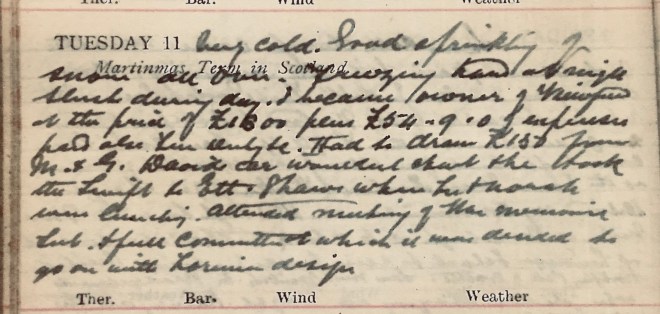 Ther. Bar. Wind Weather
TUESDAY 11 Very cold. Good sprinkling of
snow all over. Freezing hard at night
Martinmas Term in Scotland
slush during day. I became owner of
at the price of £1300 plus £54-9-0 of expenses
paid also Had to draw £150 from
M & G. David's car wouldn't start she took
the Swift to Etta Shaws where
were lunching. Attended meeting of War memorial
Sub. & full Committee at which it was decided to
go on with Lorimer design
Ther. Bar. Wind Weather